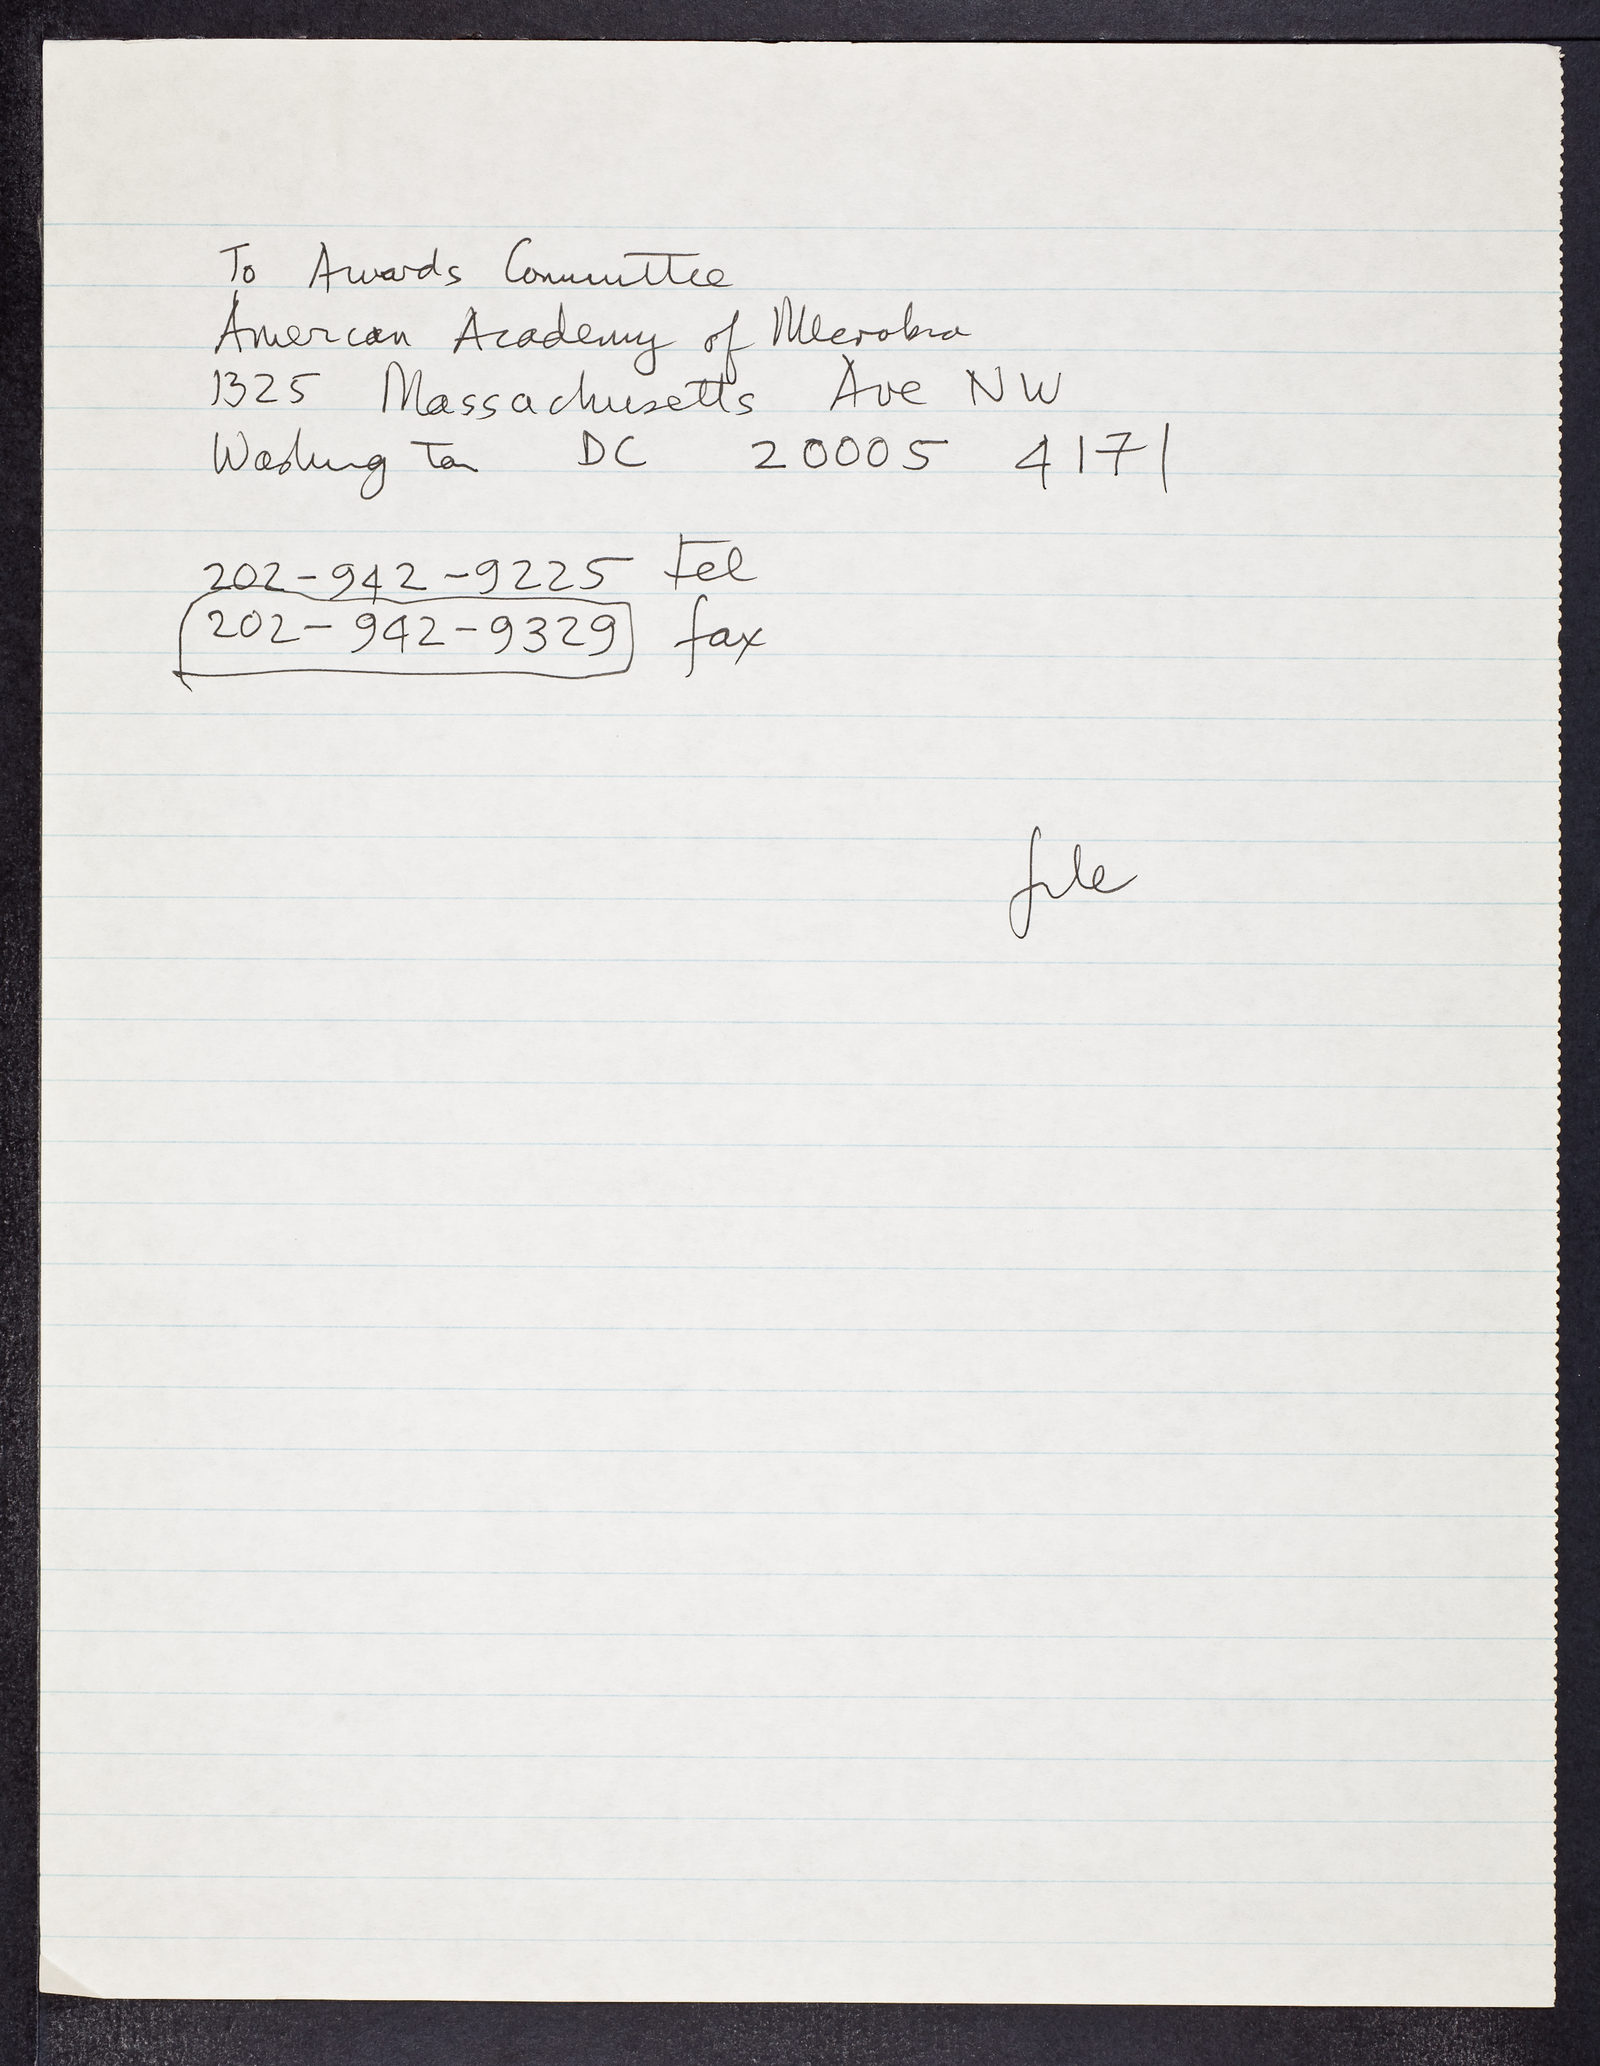 To Awards Committee
American Academy of Microbio
1325 Massachusetts Ave NW
Washington DC 20005 4171
202-942-9225 tel
202-942-9329 fax
file